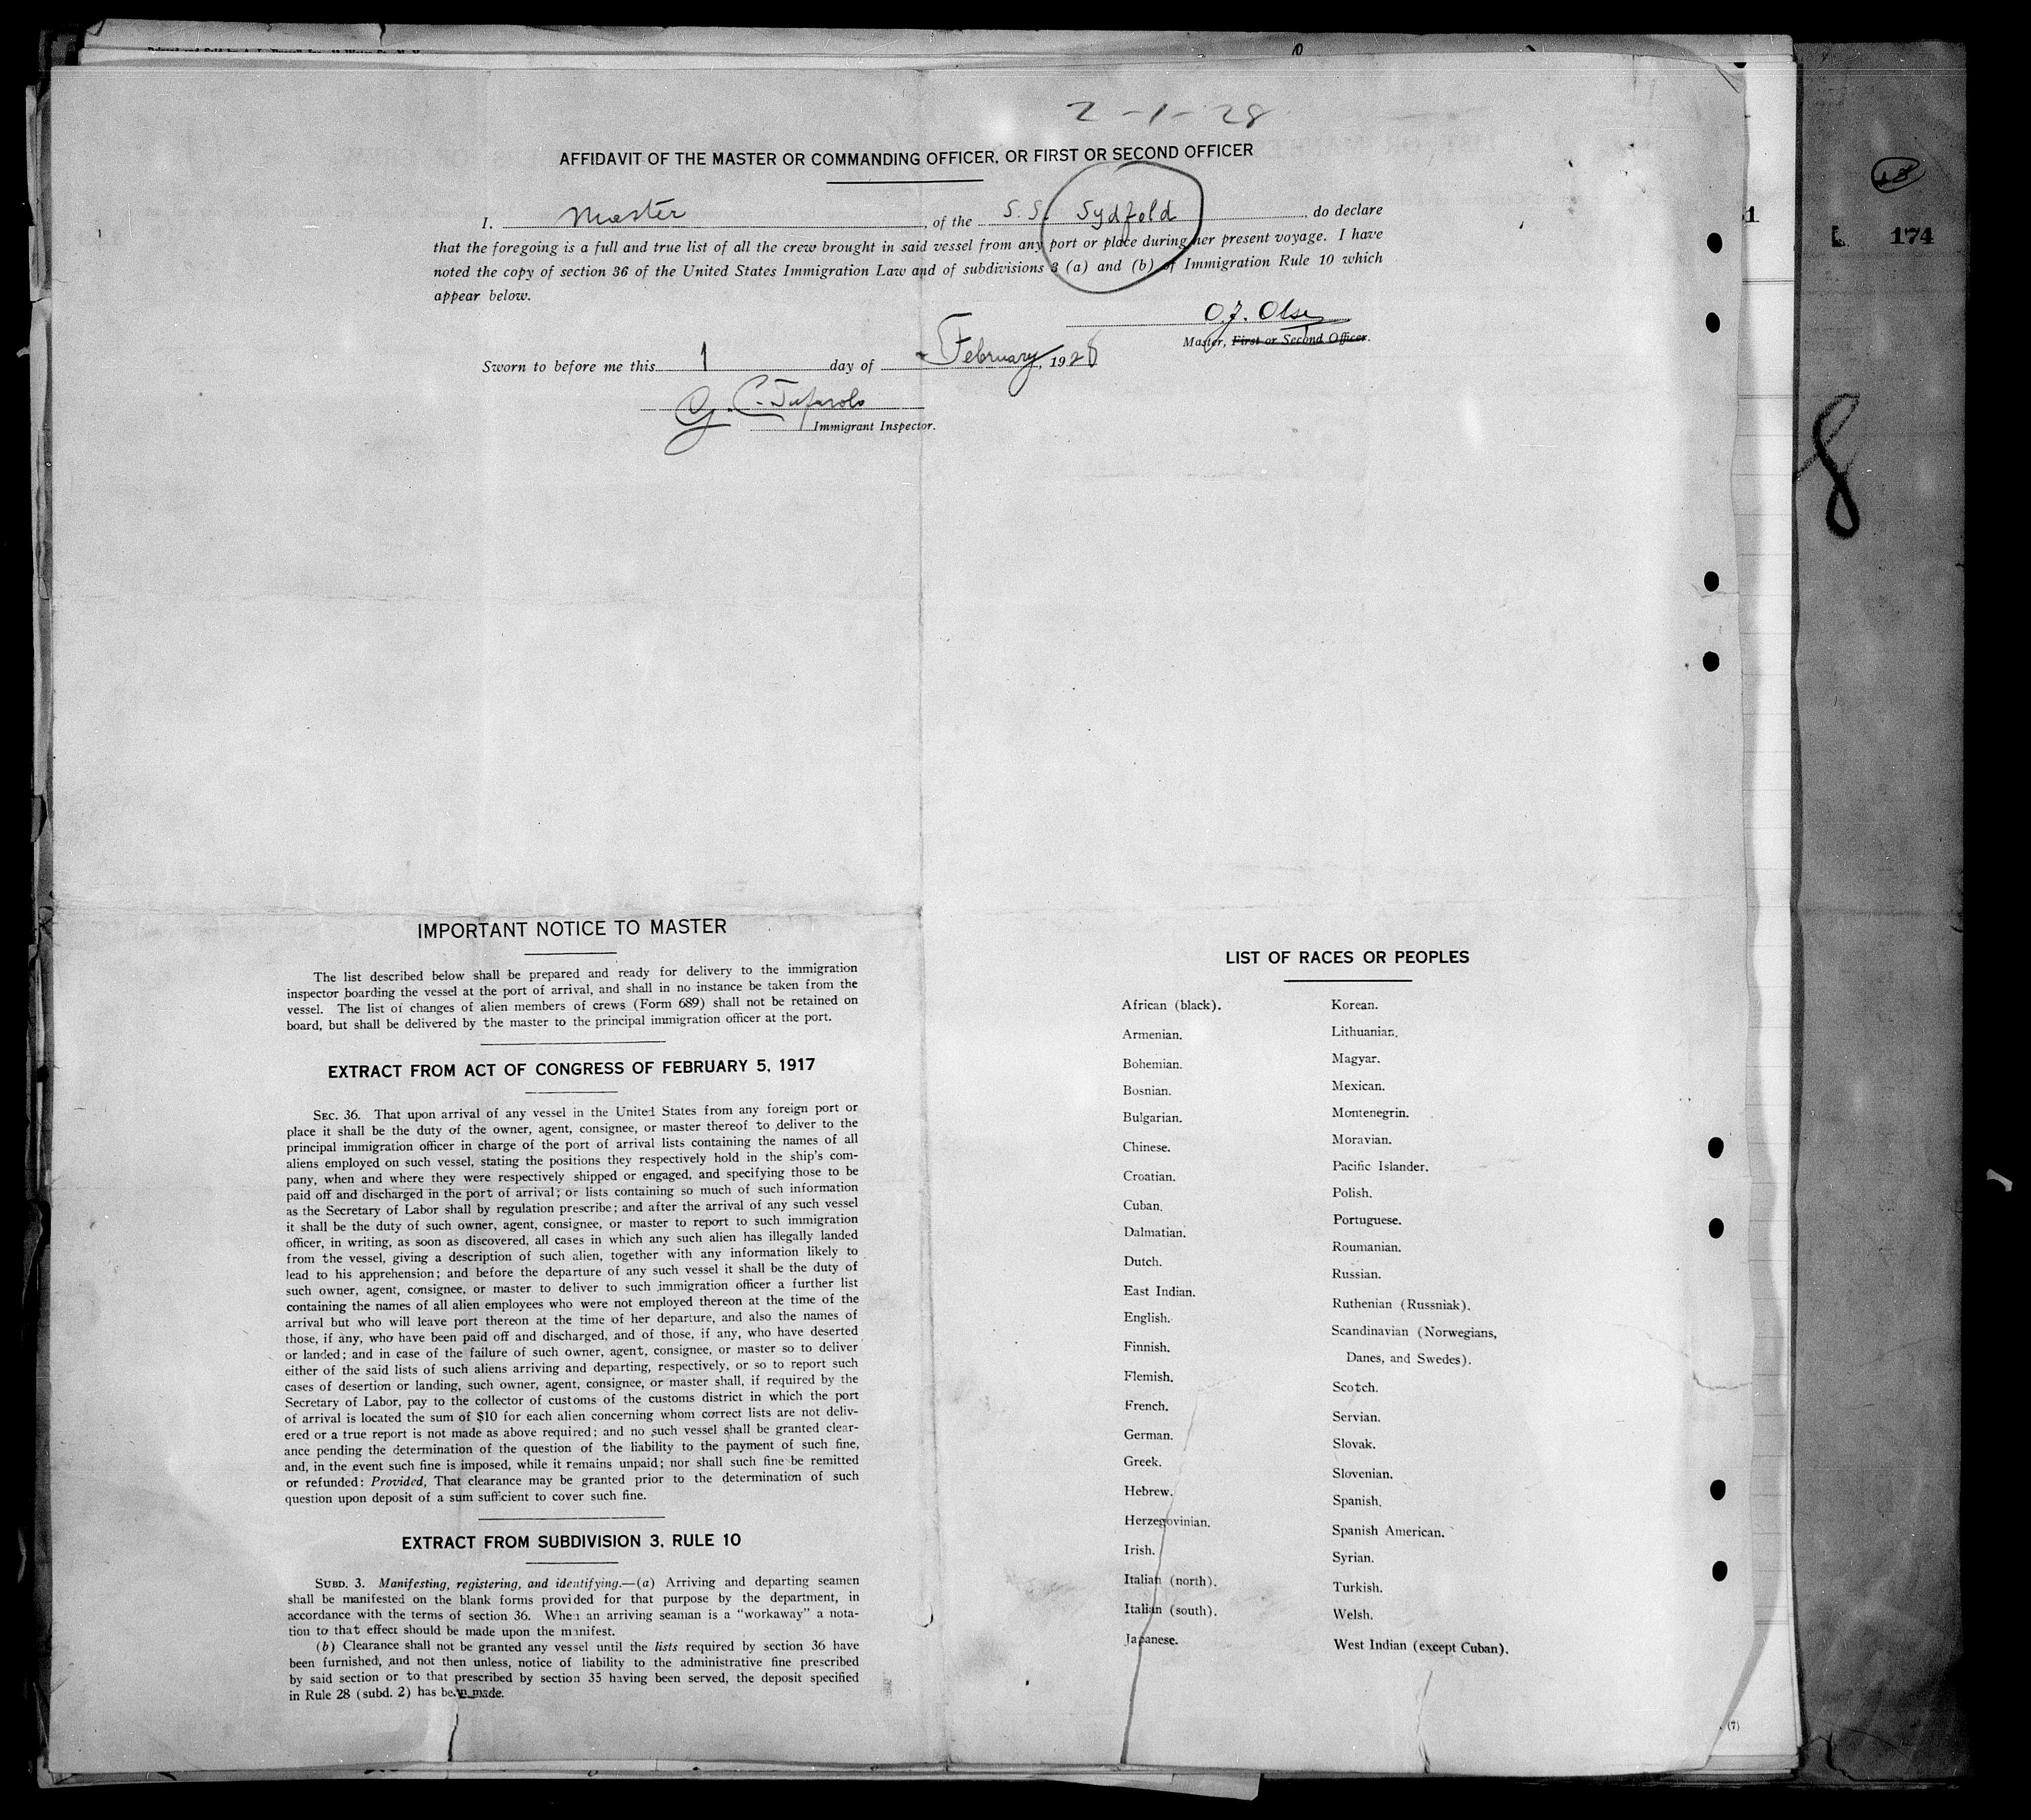 2-1-28
AFFIDAVIT OF THE MASTER OR COMMANDING OFFICER, OR FIRST OR SECOND OFFICER
I, Master, of the S.S. Sydfold, do declare
that the foregoing is a full and true list of all the crew brought in said vessel from any port or place during her present voyage. I have
noted the copy of section 36 of the United States Immigration Law and of subdivisions 3 (a) and (b) of Immigration Rule 10 which
appear below.
O.J. Olsen
Master, First or Second Officer.
Sworn to before me this 1 day of February, 1928
Immigrant Inspector.
174
8
IMPORTANT NOTICE TO MASTER
The list described below shall be prepared and ready for delivery to the immigration
inspector boarding the vessel at the port of arrival, and shall in no instance be taken from the
vessel. The list of changes of alien members of crews (Form 689) shall not be retained on
board, but shall be delivered by the master to the principal immigration officer at the port.
EXTRACT FROM ACT OF CONGRESS OF FEBRUARY 5, 1917
SEC. 36. That upon arrival of any vessel in the United States from any foreign port or
place it shall be the duty of the owner, agent, consignee, or master thereof to deliver to the
principal immigration officer in charge of the port of arrival lists containing the names of all
aliens employed on such vessel, stating the positions they respectively hold in the ship's com-
pany, when and where they were respectively shipped or engaged, and specifying those to be
paid off and discharged in the port of arrival; or lists containing so much of such information
as the Secretary of Labor shall by regulation prescribe; and after the arrival of any such vessel
it shall be the duty of such owner, agent, consignee, or master to report to such immigration
officer, in writing, as soon as discovered, all cases in which any such alien has illegally landed
from the vessel, giving a description of such alien, together with any information likely to
lead to his apprehension; and before the departure of any such vessel it shall be the duty of
such owner, agent, consignee, or master to deliver to such immigration officer a further list
containing the names of all alien employees who were not employed thereon at the time of the
arrival but who will leave port thereon at the time of her departure, and also the names of
those, if any, who have been paid off and discharged, and of those, if any, who have deserted
or landed; and in case of the failure of such owner, agent, consignee, or master so to deliver
either of the said lists of such aliens arriving and departing, respectively, or so to report such
cases of desertion or landing, such owner, agent, consignee, or master shall, if required by the
Secretary of Labor, pay to the collector of customs of the customs district in which the port
of arrival is located the sum of $10 for each alien concerning whom correct lists are not deliv-
ered or a true report is not made as above required; and no such vessel shall be granted clear-
ance pending the determination of the question of the liability to the payment of such fine,
and, in the event such fine is imposed, while it remains unpaid; nor shall such fine be remitted
or refunded: Provided, That clearance may be granted prior to the determination of such
question upon deposit of a sum sufficient to cover such fine.
EXTRACT FROM SUBDIVISION 3, RULE 10
SUBD. 3. Manifesting, registering, and identifying.—(a) Arriving and departing seamen
shall be manifested on the blank forms provided for that purpose by the department, in
accordance with the terms of section 36. When an arriving seaman is a "workaway" a nota-
tion to that effect should be made upon the manifest.
(b) Clearance shall not be granted any vessel until the lists required by section 36 have
been furnished, and not then unless, notice of liability to the administrative fine prescribed
by said section or to that prescribed by section 35 having been served, the deposit specified
in Rule 28 (subd. 2) has been made.
LIST OF RACES OR PEOPLES
African (black).
Armenian.
Bohemian.
Bosnian.
Bulgarian.
Chinese.
Croatian.
Cuban.
Dalmatian.
Dutch.
East Indian.
English.
Finnish.
Flemish.
French.
German.
Greek.
Hebrew.
Herzegovinian.
Irish.
Italian (north).
Italian (south).
Japanese.
Korean.
Lithuanian.
Magyar.
Mexican.
Montenegrin.
Moravian.
Pacific Islander.
Polish.
Portuguese.
Roumanian.
Russian.
Ruthenian (Russniak).
Scandinavian (Norwegians,
Danes, and Swedes).
Scotch.
Servian.
Slovak.
Slovenian.
Spanish.
Spanish American.
Syrian.
Turkish.
Welsh.
West Indian (except Cuban).
(7)